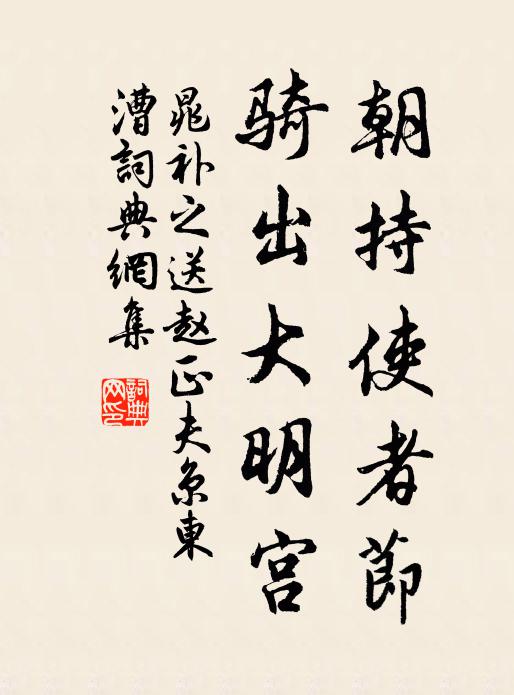 朝持使者節
骑出大明宫
晁补之送赵正夫京東
漕詞典網集
詞典
网印